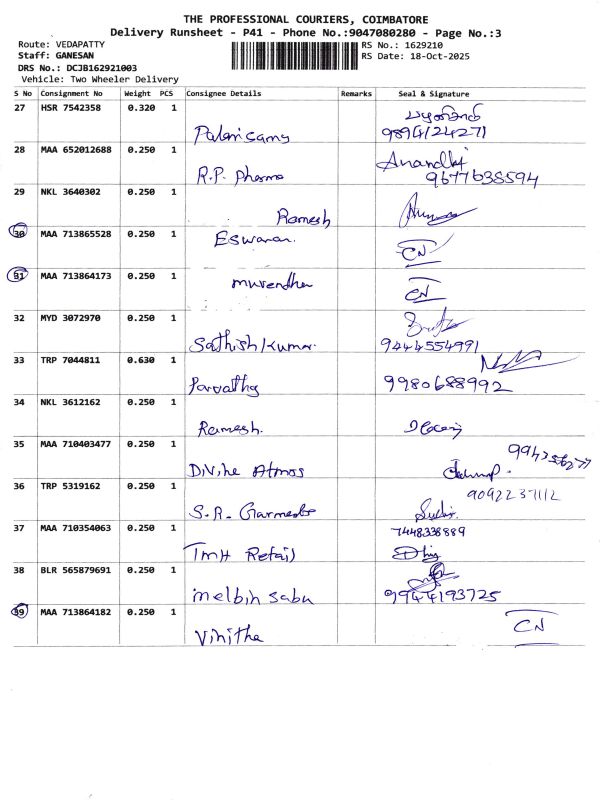 THE PROFESSIONAL COURIERS, COIMBATORE
Delivery Runsheet - P41 - Phone No.:9047080280 - Page No.:3
Route: VEDAPATTY
RS No.: 1629210
Staff: GANESAN
RS Date: 18-Oct-2025
DRS No.: DCJB162921003
Vehicle: Two Wheeler Delivery
S No Consignment No Weight PCS Consignee Details Remarks Seal & Signature
27 HSR 7542358 0.320 1
Palanisamy 9894124271
28 MAA 652012688 0.250 1 Anandhi
R.P. Pharma 9677638594
29 NKL 3640302 0.250 1
Ramesh
30 MAA 713865528 0.250 1
Eswaran. CN
31 MAA 713864173 0.250 1
Murendha CN
32 MYD 3072970 0.250 1
Sathish Kumar. 9444554991
33 TRP 7044811 0.630 1
Parvathy 9980688992
34 NKL 3612162 0.250 1
Ramesh.
35 MAA 710403477 0.250 1
Divine Atmos
36 TRP 5319162 0.250 1 9092237112
S.R. Garments
37 MAA 710354063 0.250 1 7448338889
TMH Retail
38 BLR 565879691 0.250 1
melbin sabu 9944193725
39 MAA 713864182 0.250 1
Vinitha CN